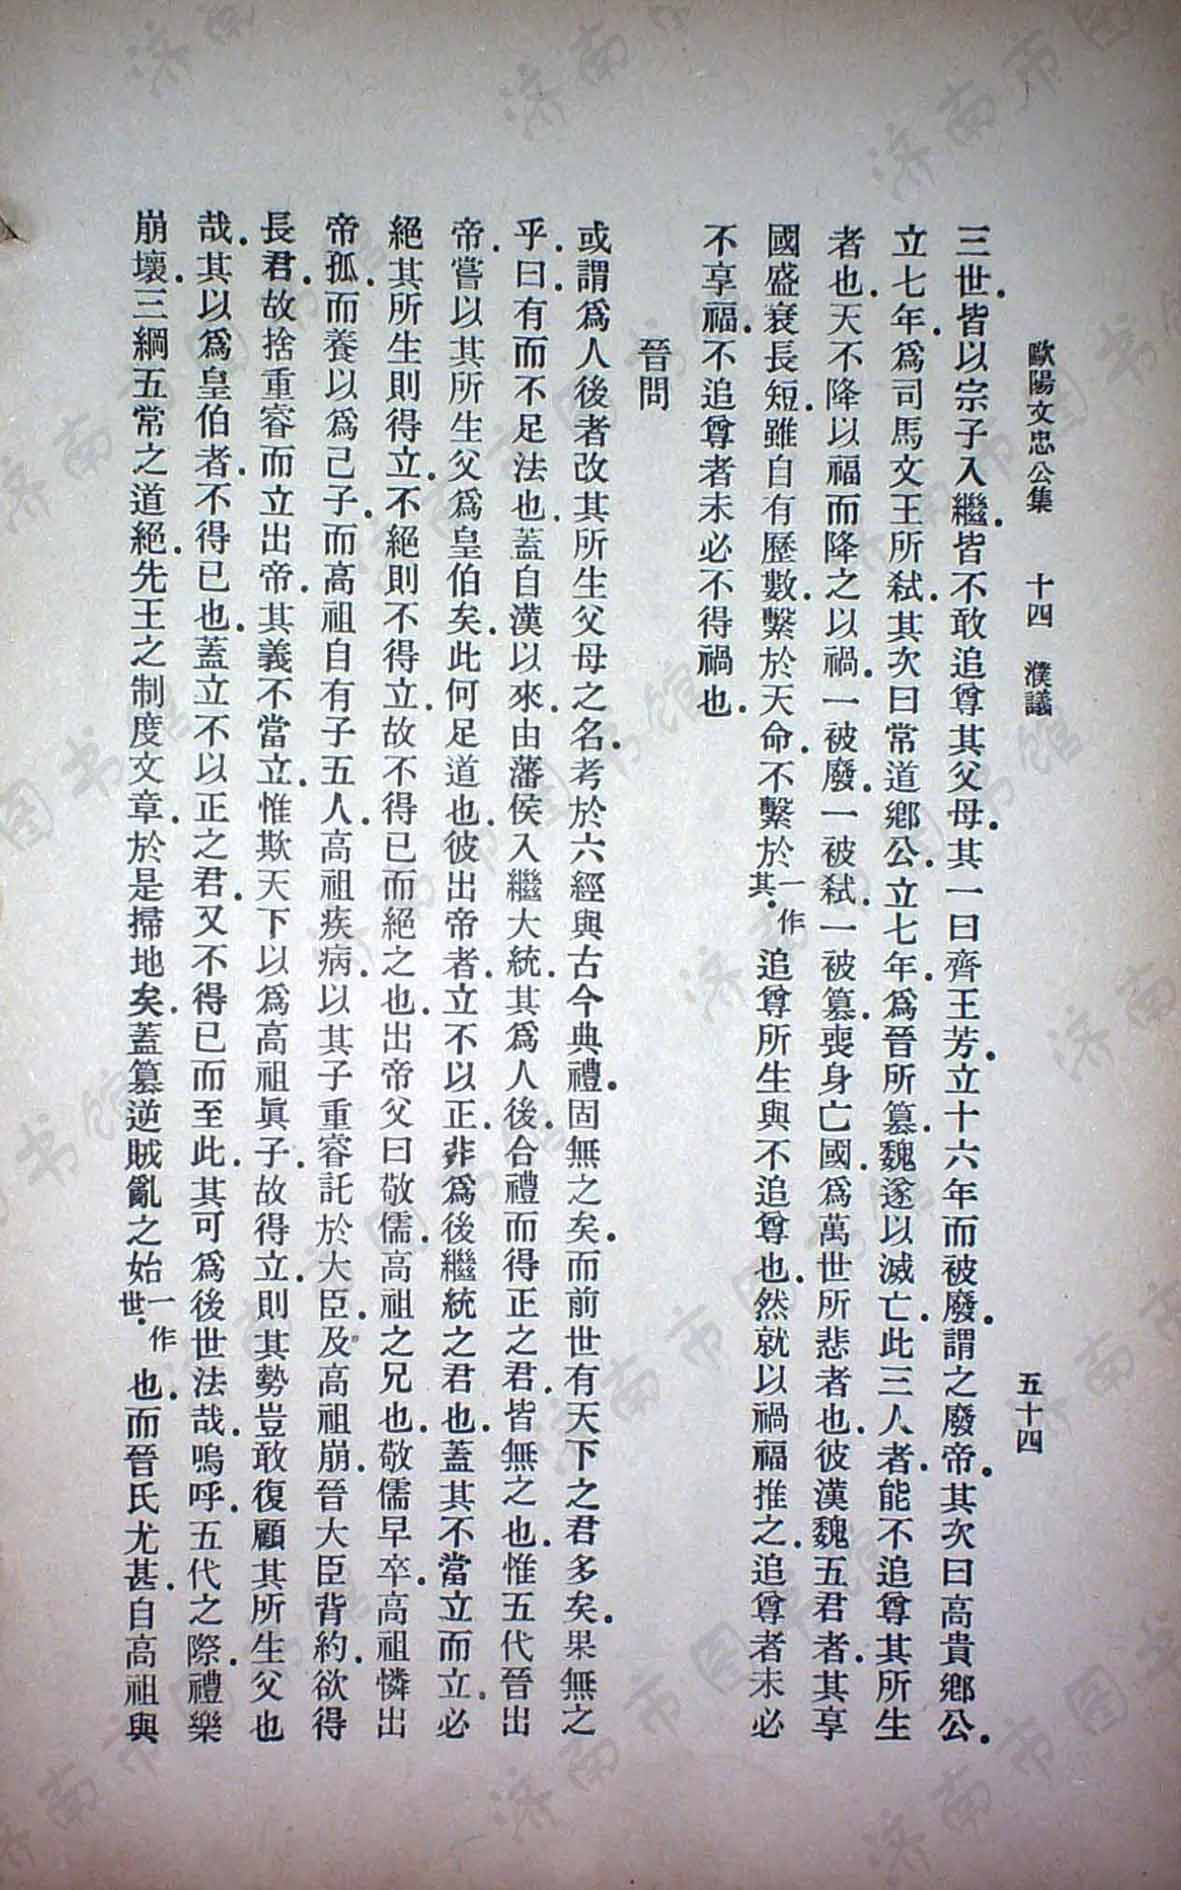 歐陽文忠公集　十四　濮議　五十四
三世．皆以宗子入繼．皆不敢追尊其父母．其一曰齊王芳．立十六年而被廢．謂之廢帝．其次曰高貴鄉公．
立七年．爲司馬文王所弒．其次曰常道鄉公．立七年．爲晉所篡．魏遂以滅亡．此三人者．能不追尊其所生
者也．天不降以福而降之以禍．一被廢．一被弒．一被篡．喪身亡國．爲萬世所悲者也．彼漢魏五君者．其享
國盛衰長短．雖自有歷數．繫於天命．不繫於一作其．追尊所生與不追尊也．然就以禍福推之．追尊者未必
不享福．不追尊者未必不得禍也．
晉問
或謂爲人後者改其所生父母之名．考於六經與古今典禮．固無之矣．而前世有天下之君多矣．果無之
乎．曰．有而不足法也．蓋自漢以來．由藩侯入繼大統．其爲人後．合禮而得正之君．皆無之也．惟五代晉出
帝．嘗以其所生父爲皇伯矣．此何足道也．彼出帝者．立不以正．非爲後繼統之君也．蓋其不當立而立．必
絕其所生則得立．不絕則不得立．故不得已而絕之也．出帝父曰敬儒．高祖之兄也．敬儒早卒．高祖憐出
帝孤．而養以爲己子．而高祖自有子五人．高祖疾病．以其子重睿託於大臣．及高祖崩．晉大臣背約．欲得
長君．故捨重睿而立出帝．其義不當立．惟欺天下以爲高祖眞子．故得立．則其勢豈敢復顧其所生父也
哉．其以爲皇伯者．不得已也．蓋立不以正之君．又不得已而至此．其可爲後世法哉．嗚呼．五代之際．禮樂
崩壞．三綱五常之道絕．先王之制度文章．於是掃地矣．蓋篡逆賊亂之始一作世．也．而晉氏尤甚．自高祖與